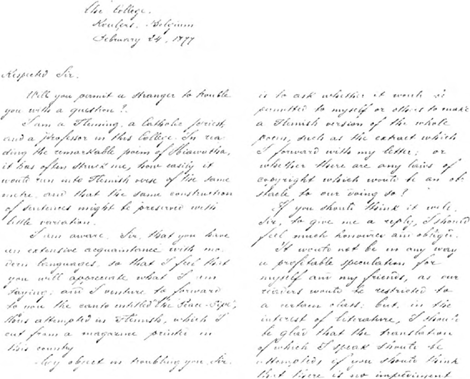 The College.
Roulers. Belgium
February 24, 1877
Respected Sir.
Will you permit a stranger to trouble
you with a question?
I am a Fleming, a Catholic priest,
and a professor in this College. In rea
ding the remarkable poem of Hiawatha,
it has often struck me, how easily it
would run into Flemish verse of the same
metre, and that the same construction
of sentences might be preserved with
little variation.
I am aware, Sir, that you have
an extensive acquaintance with mo
dern languages, so that I feel that
you will appreciate what I am
saying, and I venture to forward
to you the canto entitled the Peace-Pipe,
thus attempted in Flemish, which I
cut from a magazine printed in
this country
My object in troubling you, Sir,
is to ask whether it would be
permitted to myself or others to make
a Flemish version of the whole
poem, such as the extract which
I forward with my letter; or
whether there are any laws of
copyright which would be an ob
stacle to our doing so?
If you should think it well,
Sir, to give me a reply, I should
feel much honoured and obliged.
It would not be in any way
a profitable speculation for
myself and my friends, as our
readers would be restricted to
a certain class, but, in the
interest of literature, I should
be glad that the translation
of which I speak should be
attempted, if you should think
that there is no impediment